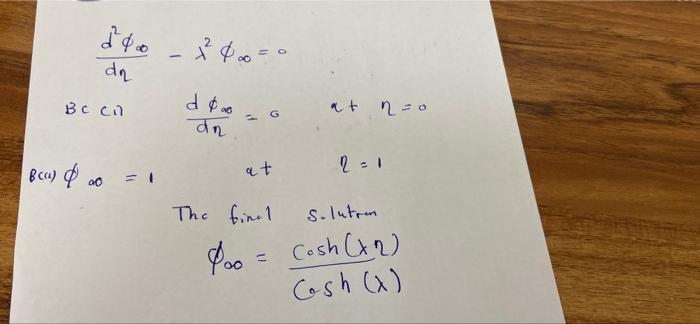 d²φ∞/dη - λ² φ∞ = 0
BC (1) dφ∞/dη = 0 at η = 0
BC(2) φ∞ = 1 at η = 1
The final solution
φ∞ = Cosh(λη)/Cosh(λ)